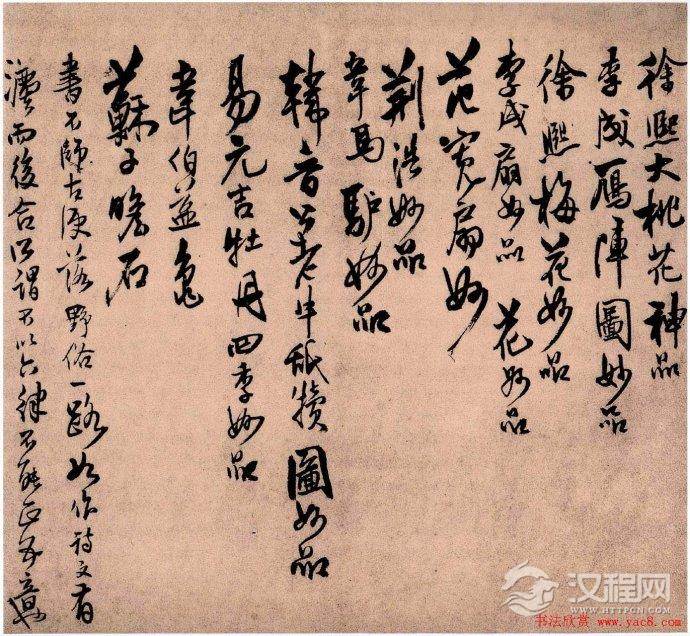 徐熙大桃花神品
李成鴈陣圖妙品
徐熙梅花妙品
李成扇妙品 花妙品
范寬扇妙
荆浩妙品
韋馬驢妙品
韓晋公老牛舐犢圖妙品
易元吉牡丹四季妙品
韋伯益龜
蘇子瞻石
書不師古便落野俗一路如作詩文有
灋而後合所謂不以六律不能正五音也
汉程网
WWW.HTTPCN.COM
书法欣赏 www.yac8.com